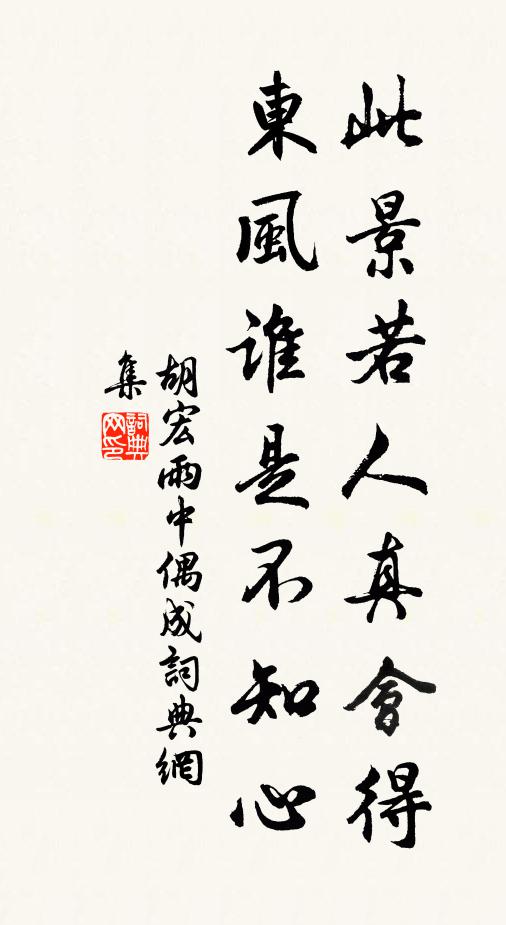 此景若人真會得
東風誰是不知心
胡宏雨中偶成詞典網
集
詞典
网印